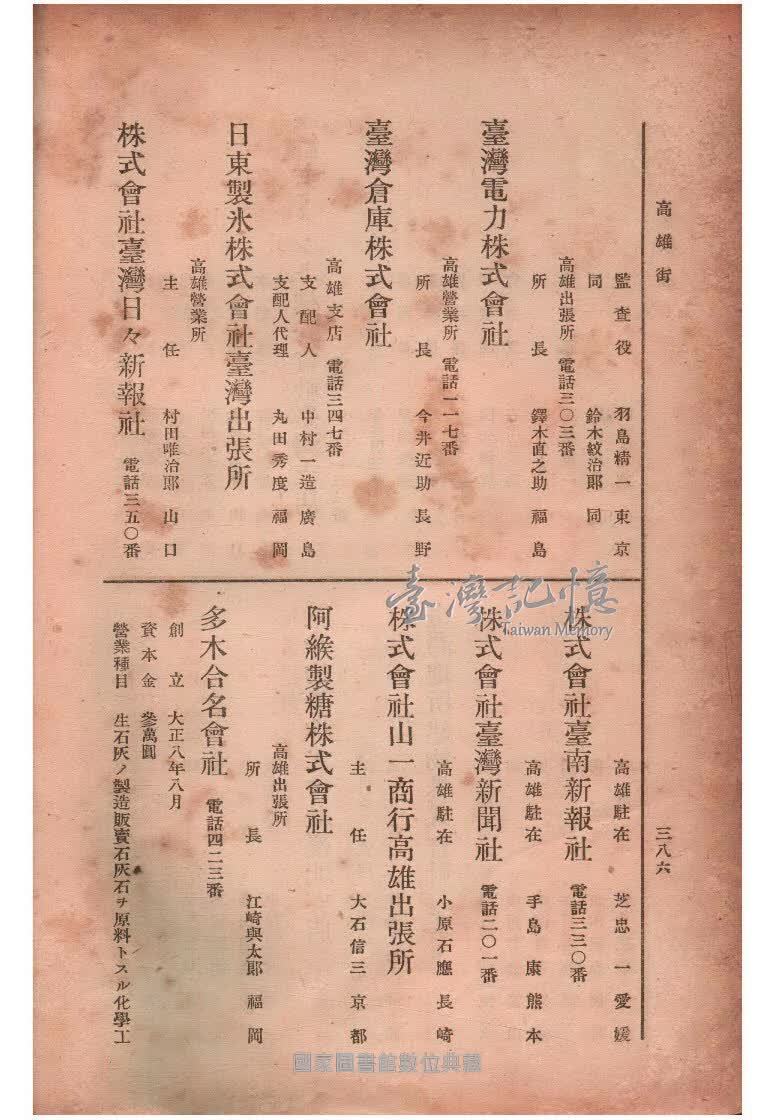 高雄街
三八六
監査役 羽島精一 東京
同 鈴木紋治郎 同
臺灣電力株式會社
高雄出張所 電話三〇三番
所長 鐸木直之助 福島
臺灣倉庫株式會社
高雄營業所 電話一一七番
所長 今井近助 長野
日東製氷株式會社臺灣出張所
高雄支店 電話三四七番
支配人 中村一造 廣島
支配人代理 丸田秀度 福岡
株式會社臺灣日々新報社 電話三五〇番
高雄營業所
主任 村田唯治郎 山口
株式會社臺南新報社 電話三三〇番
高雄駐在 芝忠一 愛媛
株式會社臺灣新聞社 電話二〇一番
高雄駐在 手島康 熊本
株式會社山一商行高雄出張所
高雄駐在 小原石應 長崎
主任 大石信三 京都
阿緱製糖株式會社
高雄出張所
所長 江崎與太郎 福岡
多木合名會社 電話四二三番
創立 大正八年八月
資本金 參萬圓
營業種目 生石灰ノ製造販賣石灰石ヲ原料トスル化學工
臺灣記憶
Taiwan Memory
國家圖書館數位典藏